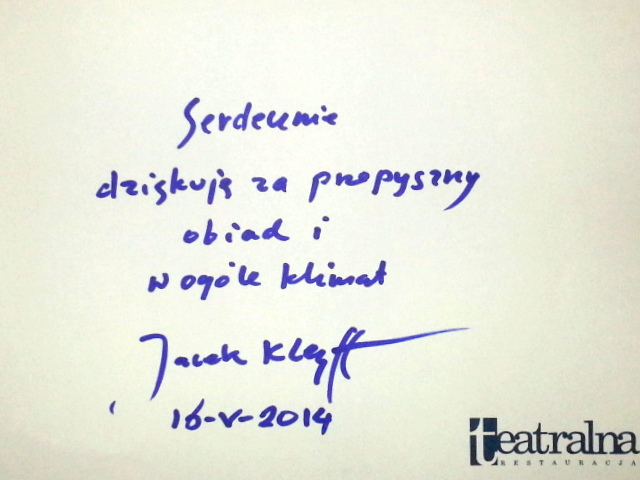 Serdecznie
dziękuję za przepyszny
obiad i
w ogóle klimat
Jacek Kleyff
16-V-2014
teatralna
RESTAURACJA